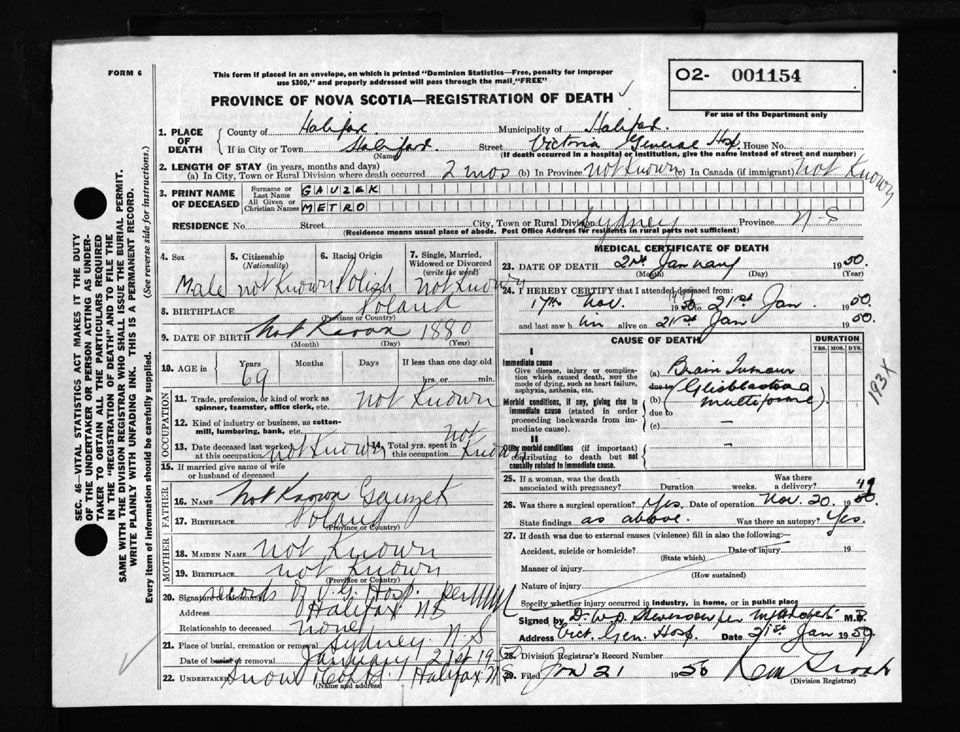 FORM 6
This form if placed in an envelope, on which is printed "Dominion Statistics—Free, penalty for improper
use $300," and properly addressed will pass through the mail "FREE"
O2- 001154
For use of the Department only
PROVINCE OF NOVA SCOTIA—REGISTRATION OF DEATH
1. PLACE OF DEATH
County of Halifax Municipality of Halifax
If in City or Town Halifax Street Victoria General Hosp. House No.
(Name) (If death occurred in a hospital or institution, give the name instead of street and number)
2. LENGTH OF STAY (in years, months and days)
(a) In City, Town or Rural Division where death occurred 2 mos (b) In Province not Known (c) In Canada (if immigrant) not Known
3. PRINT NAME OF DECEASED
Surname or Last Name GAUZEK
All Given or Christian Names METRO
RESIDENCE No. Street City, Town or Rural Division Sydney Province N-S
(Residence means usual place of abode. Post Office Address for residents in rural parts not sufficient)
4. Sex Male
5. Citizenship (Nationality) not Known
6. Racial Origin Polish
7. Single, Married, Widowed or Divorced (write the word) not Known
8. BIRTHPLACE Poland
(Province or Country)
9. DATE OF BIRTH Not Known 1880
(Month) (Day) (Year)
10. AGE in Years 69 Months Days If less than one day old
hrs. or min.
OCCUPATION
11. Trade, profession, or kind of work as spinner, teamster, office clerk, etc. not Known
12. Kind of industry or business, as cotton-mill, lumbering, bank, etc.
13. Date deceased last worked at this occupation not Known
14. Total yrs. spent in this occupation not Known
15. If married give name of wife or husband of deceased
FATHER
16. NAME Not Known Gauzek
17. BIRTHPLACE Poland
(Province or Country)
MOTHER
18. MAIDEN NAME not Known
19. BIRTHPLACE not Known
(Province or Country)
20. Signature of informant records of V.G. Hosp. per
Address Halifax NS
Relationship to deceased none
21. Place of burial, cremation or removal Sydney N-S
Date of burial or removal January 21st 1950
22. UNDERTAKER Snow Co Ltd. Halifax N S
(Name and address)
MEDICAL CERTIFICATE OF DEATH
23. DATE OF DEATH 21st January 1950.
(Month) (Day) (Year)
24. I HEREBY CERTIFY that I attended deceased from
17th Nov. to 21st Jan. 1950
and last saw him alive on 21st Jan 1950.
CAUSE OF DEATH
DURATION
YRS. MOS. DYS.
I
Immediate cause
Give disease, injury or complication which caused death, NOT the mode of dying, such as heart failure, asphyxia, asthenia, etc.
(a) Brain Tumour
due to
Morbid conditions, if any, giving rise to immediate cause (stated in order proceeding backwards from immediate cause).
(b) (Glioblastoma multiforme)
due to
(c) —
II
Other morbid conditions (if important) contributing to death but not causally related to immediate cause.
—
193X
25. If a woman, was the death associated with pregnancy? Duration weeks. Was there a delivery?
26. Was there a surgical operation? Yes. Date of operation Nov. 20. 1949
State findings as above. Was there an autopsy? Yes.
27. If death was due to external causes (violence) fill in also the following:
Accident, suicide or homicide? Date of injury 19
(State which)
Manner of injury
(How sustained)
Nature of injury
Specify whether injury occurred in industry, in home, or in public place
Signed by Dr. W.D. Stevenson per M.D.
Address Vict. Gen. Hosp. Date 21st Jan 1950
28. Division Registrar's Record Number
29. Filed Jan 21 1950
(Division Registrar)
SEC. 46—VITAL STATISTICS ACT MAKES IT THE DUTY
OF THE UNDERTAKER OR PERSON ACTING AS UNDER-
TAKER TO OBTAIN ALL THE PARTICULARS REQUIRED
IN THE "REGISTRATION OF DEATH" AND TO FILE THE
SAME WITH THE DIVISION REGISTRAR WHO SHALL ISSUE THE BURIAL PERMIT.
WRITE PLAINLY WITH UNFADING INK. THIS IS A PERMANENT RECORD.
Every item of information should be carefully supplied. (See reverse side for instructions.)